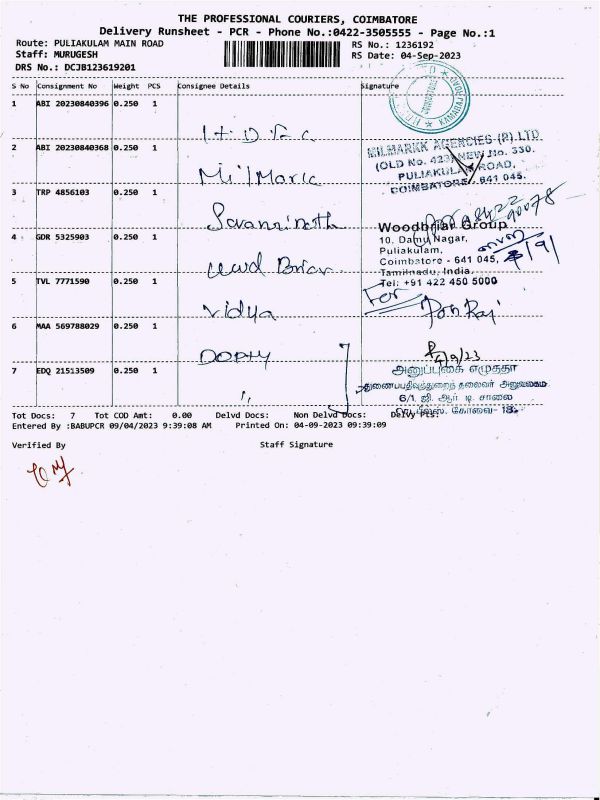 THE PROFESSIONAL COURIERS, COIMBATORE
Delivery Runsheet - PCR - Phone No.:0422-3505555 - Page No.:1
Route: PULIAKULAM MAIN ROAD
RS No.: 1236192
Staff: MURUGESH
RS Date: 04-Sep-2023
DRS No.: DCJB123619201
S No Consignment No Weight PCS Consignee Details Signature
1 ABI 20230840396 0.250 1
2 ABI 20230840368 0.250 1
MILMARKK AGENCIES (P) LTD
(OLD No. 423) NEW No. 330,
PULIAKULAM ROAD,
COIMBATORE - 641 045.
Milmark
3 TRP 4856103 0.250 1
4 GDR 5325903 0.250 1
Woodbriar Group
10, Damu Nagar,
Puliakulam,
Coimbatore - 641 045,
Tamilnadu, India.
Tel: +91 422 450 5000
5 TVL 7771590 0.250 1
Vidya
For
Pon Raj
6 MAA 569788029 0.250 1
4/9/23
7 EDQ 21513509 0.250 1
அனுப்புகை எழுத்தர்
துணைப்பதிவுத்துறைத் தலைவர் அலுவலகம்
6/1, ஜி. ஆர். டி. சாலை
கோவை - 18.
Tot Docs: 7 Tot COD Amt: 0.00 Delvd Docs: Non Delvd Docs: Delvy Pts:
Entered By :BABUPCR 09/04/2023 9:39:08 AM Printed On: 04-09-2023 09:39:09
Verified By Staff Signature